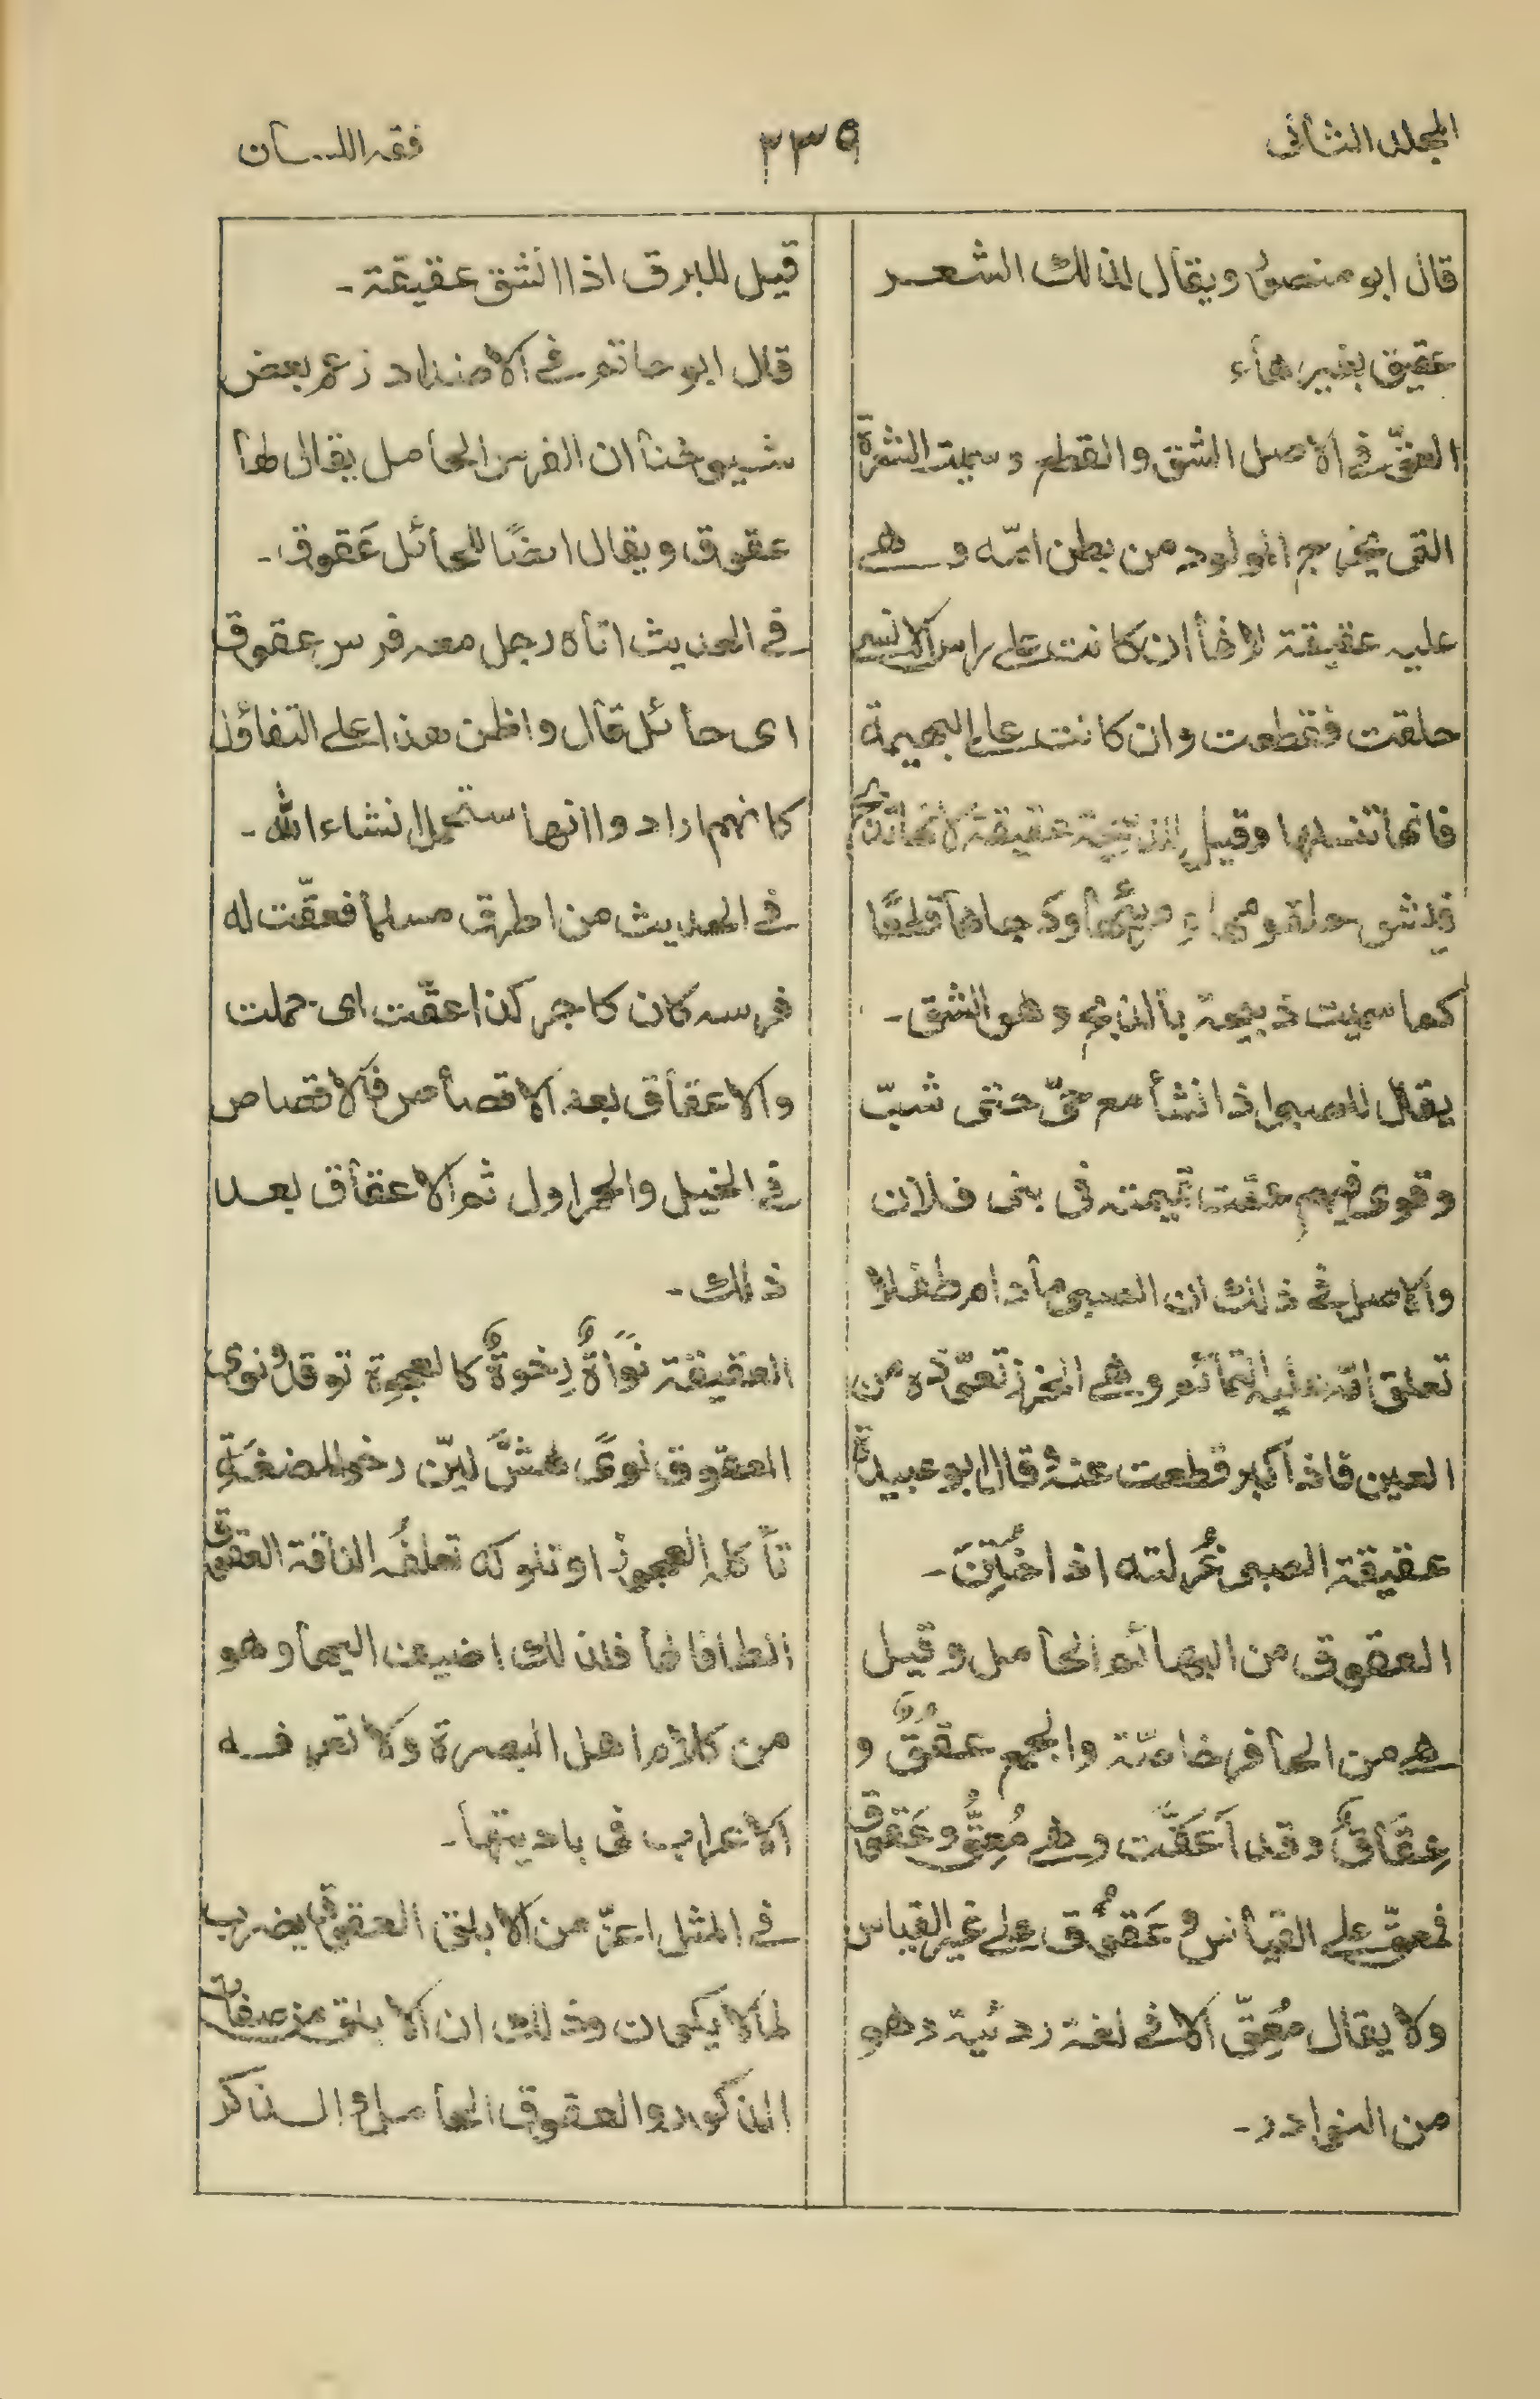 المجلد الثانی
٢٣٥
فقه اللسان
قال ابو منصور ويقال لذالك الشعر
عقيق بغير هاء
العقّ فی الاصل الشق والقطع وسميت الشعرة
التی يخرج المولود من بطن امّه وهے
عليه عقيقة لانها ان كانت علی راس الانسی
حلقت فقطعت وان كانت علی البهيمة
فانها تنسلها وقيل للذبيحة عقيقة لانها تذبح
فيشق حلقومها و مريئها وودجاها قطعًا
كما سميت ذبيحة بالذبح وهو الشق۔
يقال للصبی اذا نشأ مع حیّ حتی شبّ
وقوی فيهم عقت تميمته فی بنی فلان
والاصل فی ذلك ان الصبی مادام طفلا
تعلق امّه عليه التمائم وهے الخرز تعوّذه من
العين فاذا كبر قطعت عنهُ قال ابو عبيدة
عقيقة الصبی غُرلته اذا خُتِنَ۔
العقوق من البهائم الحامل وقيل
هے من الحافر خاصّة والجمع عقُقٌ و
عِقَاقٌ وقد اَعَقَّت وهے مُعِقٌّ وعَقوق
فمعقّ علی القياس و عَقُوق علی غير القياس
ولا يقال مُعِقّ الا فی لغة ردئية وهو
من النوادر۔
قيل للبرق اذا انشق عقيقة۔
قال ابو حاتم فی الاضداد زعم بعض
شيوخنا ان الفرس الحامل يقال لها
عقوق ويقال ايضًا للحائل عَقوق۔
فی الحديث اتاه رجل معه فرس عقوق
ای حائل قال واظن هذا علی التفاؤل
كانهم ارادوا انها ستحمل انشاء الله۔
فی الحديث من اطرق مسلما فعقّت له
فرسه كان كاجر كذا عقّت ای حملت
والاعقاق بعد الاقصاص فالاقصاص
فی الخيل والحمر اول ثم الاعقاق بعد
ذلك۔
العقيقة نَوَاةٌ رِخوةٌ كالعجوة توقلُ نوی
العقوق نوىً هشٌّ ليّن رخو المضغَةِ
تأكله العجوز او تلوكه تعلفُه الناقة العقوق
الطافا لها فلذلك اضيف اليها وهو
من كلام اهل البصرة ولا تعرفه
الاعراب فی باديتها۔
فی المثل اعزّ من الابلق العقوق يضرب
لما لا يكون وذلك ان الابلق من صفات
الذكور والعقوق الحامل والذكر